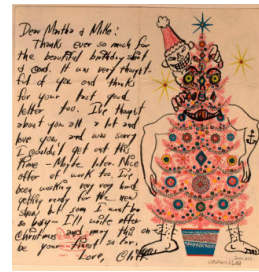 Dear Martha & Mike:
Thanks ever so much for
the beautiful birthday shirt
&  card. It was very thought-
ful of you and thanks
for your last good
letter too. I've thought
about you all a lot and
love you and was sorry
I couldn't get out this
time - Maybe later. Nice
offer of work too. I've
been working very very hard
getting ready for the new
show
so I'll write after
Christmas and may this one
be your so far.
Love,